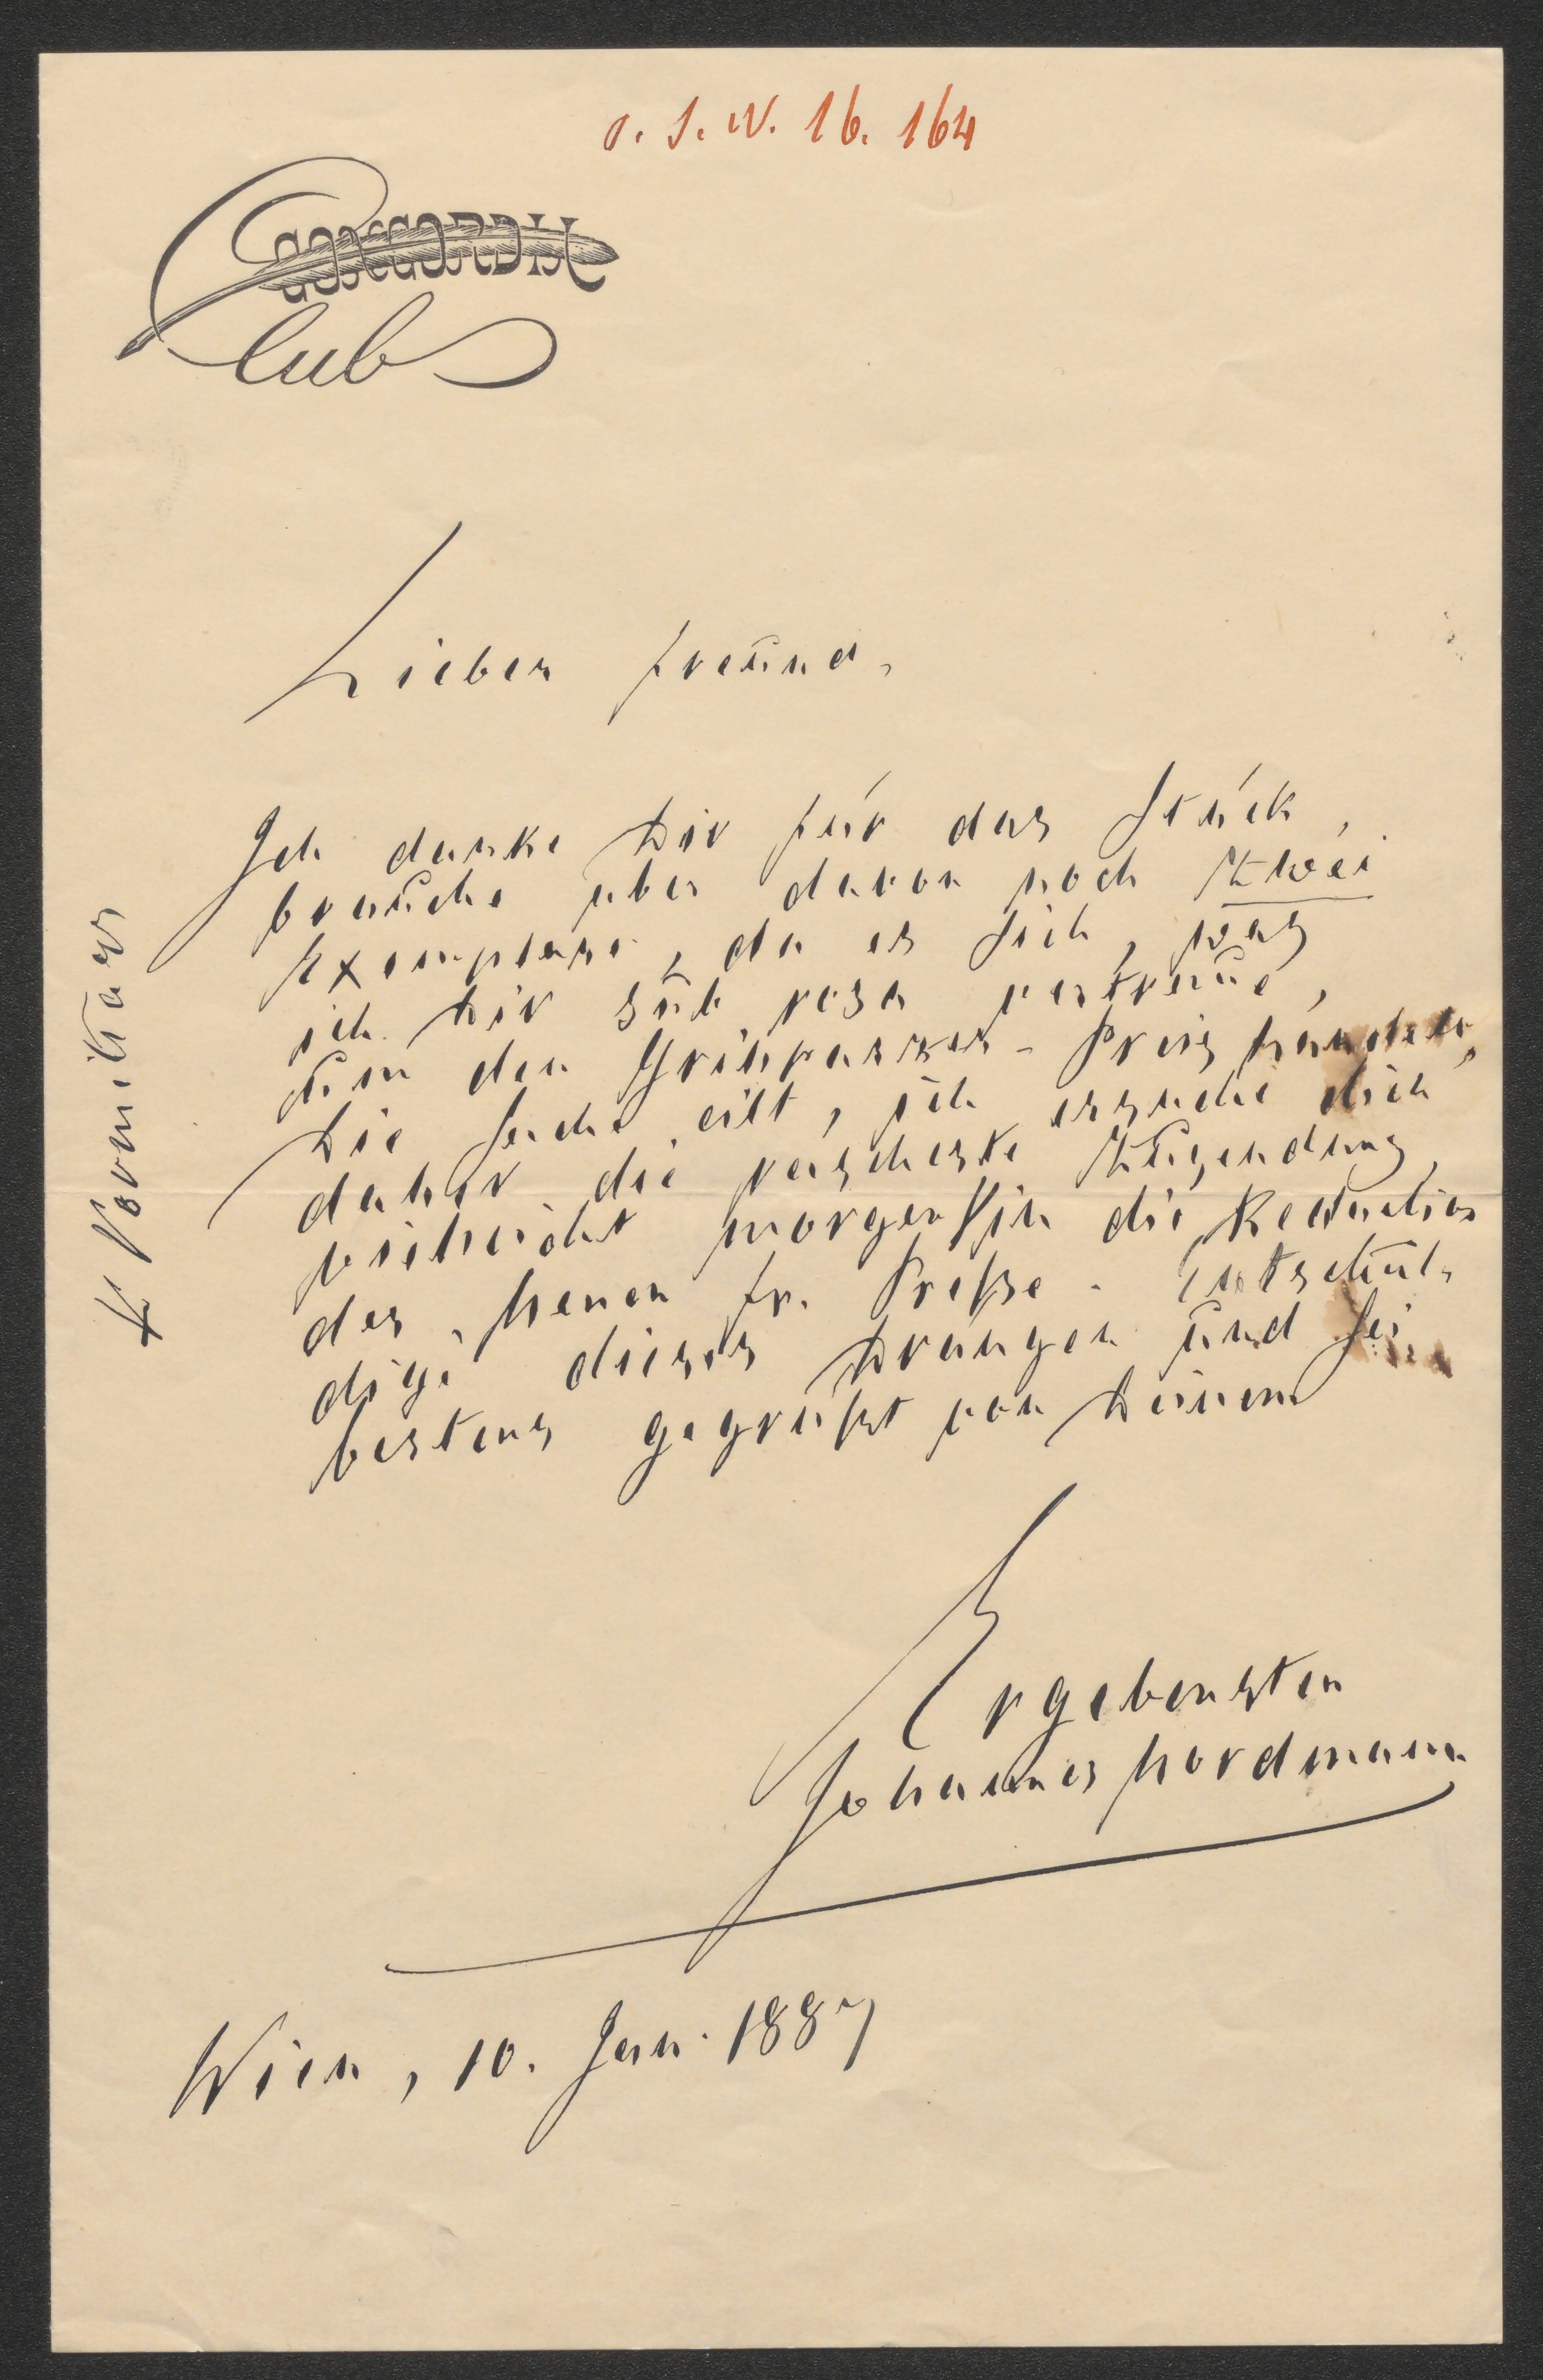 O. S. N. 16. 164
CONCORDIA
Club
Lieber Freund,
Ich danke Dir für das Stück,
brauche aber davon noch zwei
Exemplare, da es sich, was
ich Dir sub rosa vertraue,
um den Grillparzer-Preis handelt,
Die Sache eilt, ich ersuche dich
daher die rascheste Zusendung,
vielleicht morgen in die Redaction
der Neuen fr. Presse. Entschul-
dige dieses Drängen und sei
bestens gegrüßt von Deinem
Ergebensten
Johannes Nordmann
Wien, 10. Jan. 1887
* Vormittags